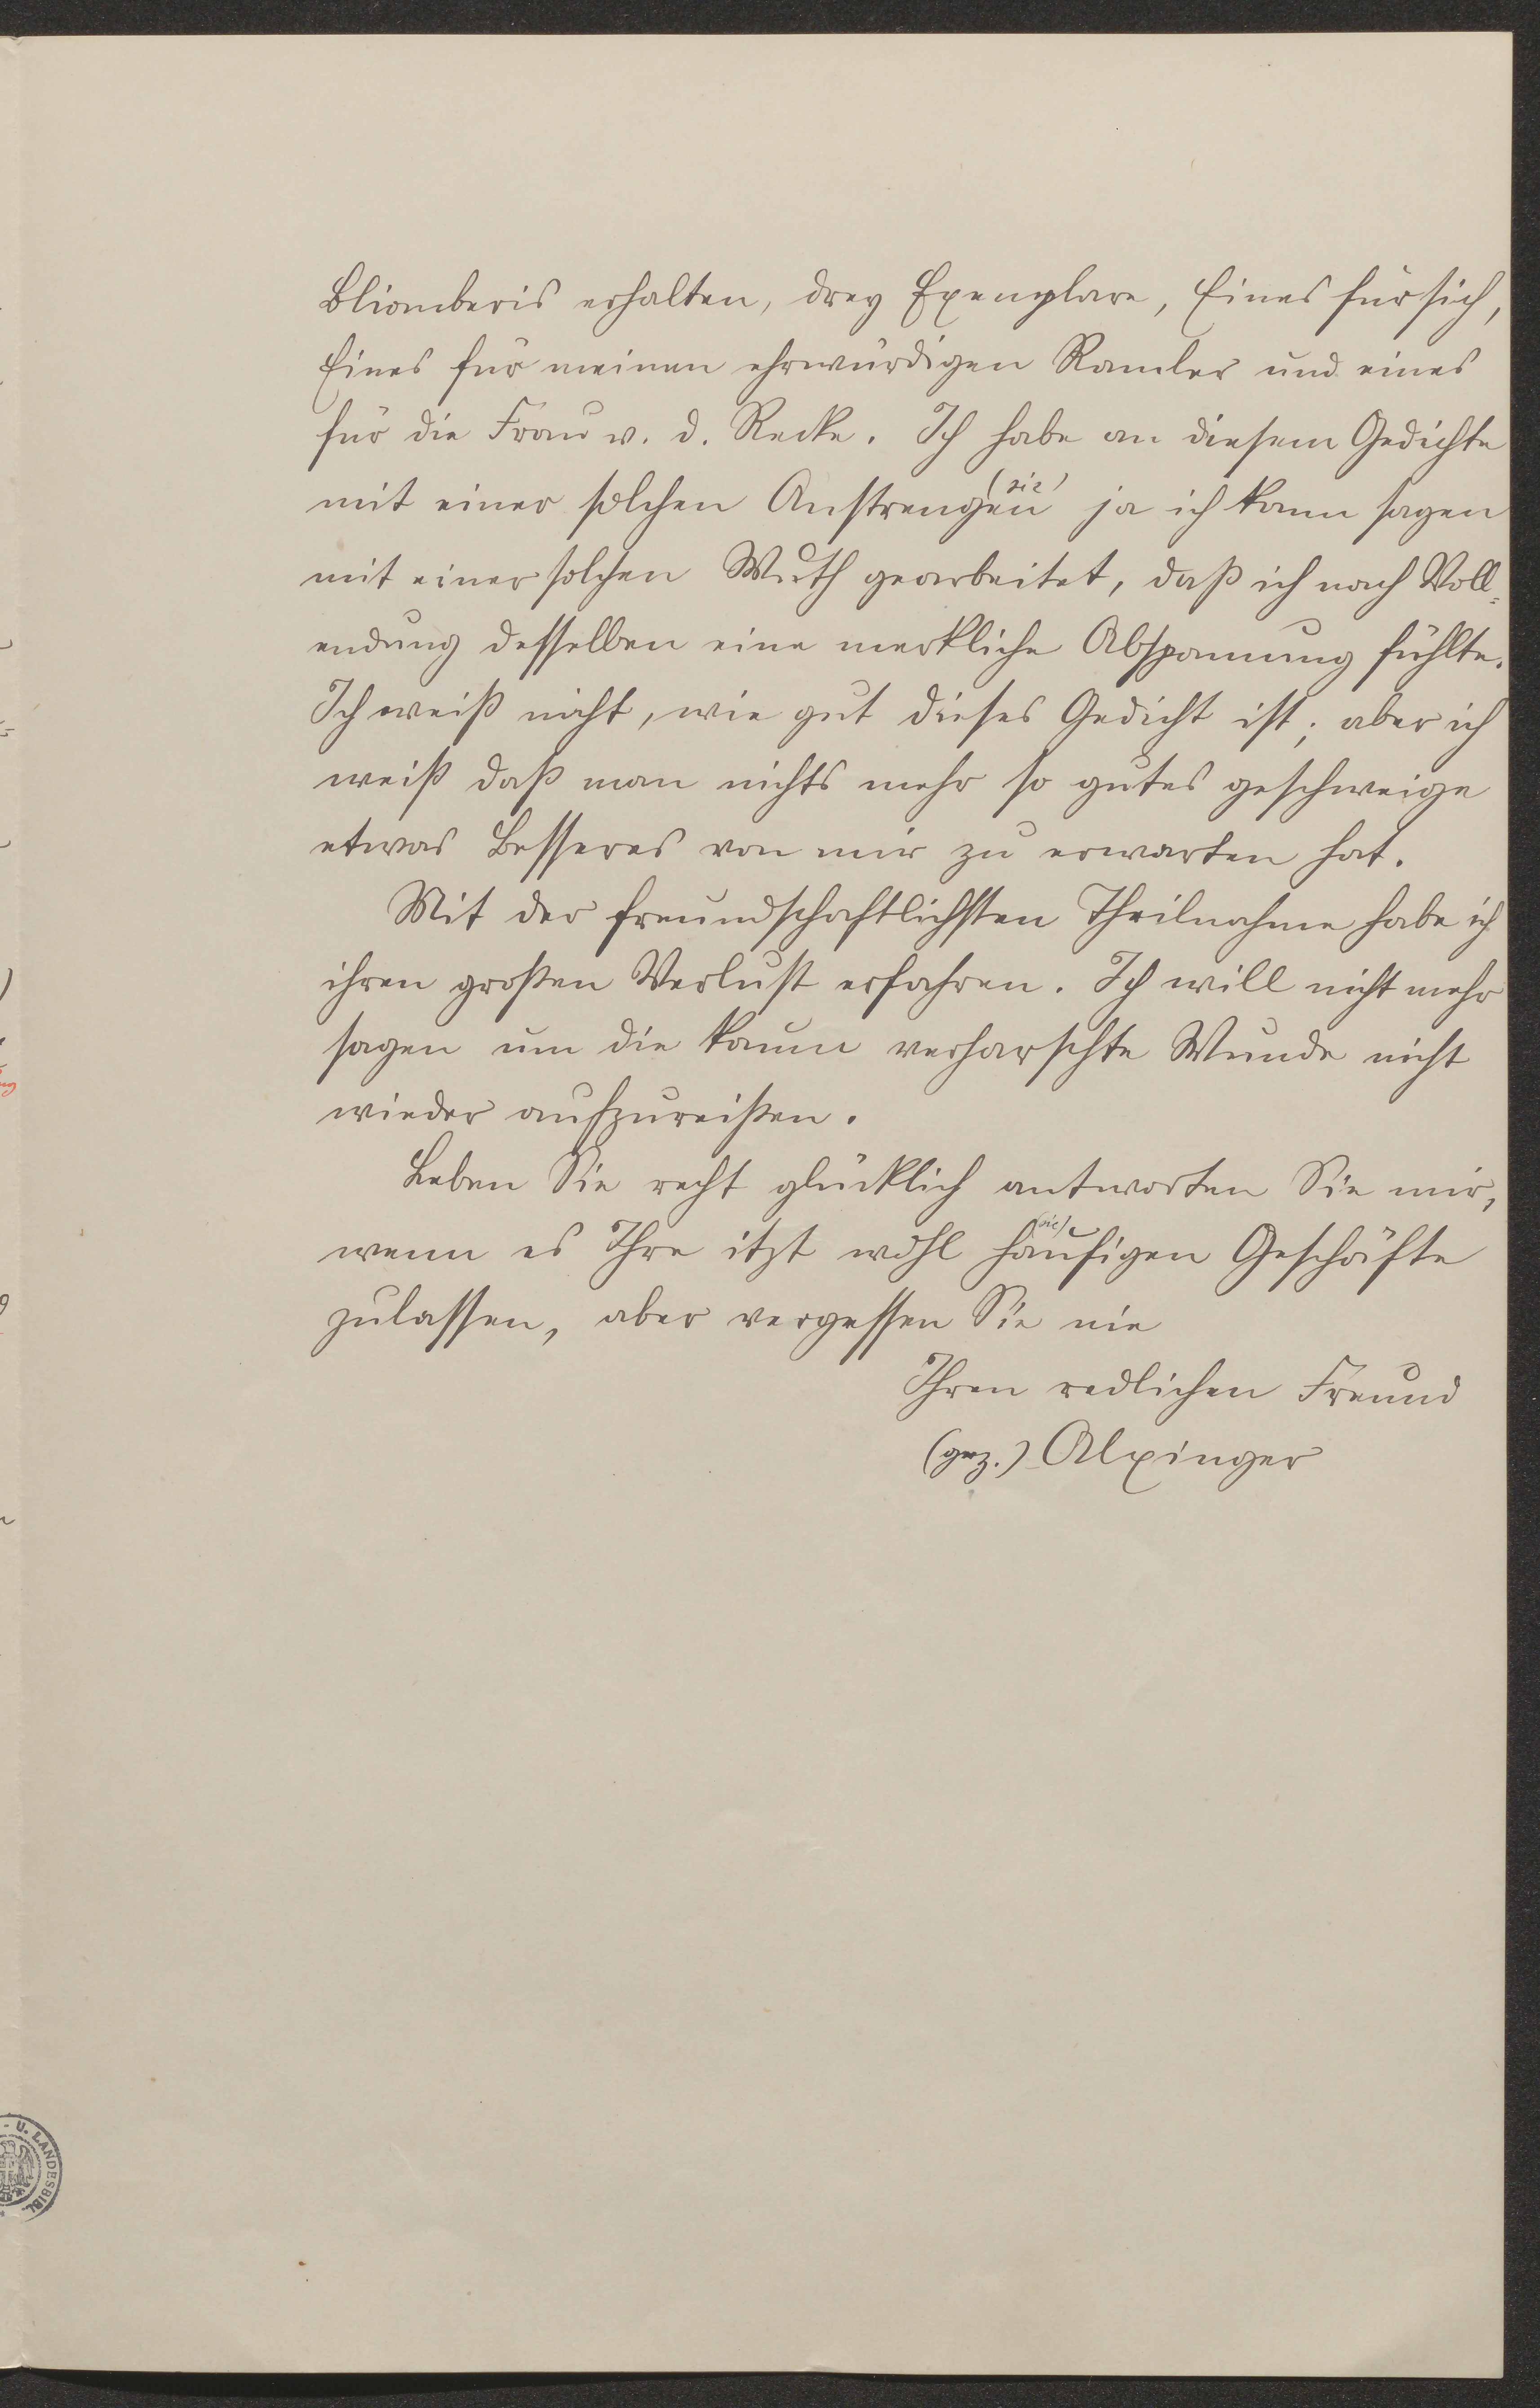 Bliomberis erhalten, drey Exemplare, Eines für sich,
Eines für meinen ehrwürdigen Ramler und eines
für die Frau v. d. Recke. Ich habe an diesem Gedichte
mit einer solchen Anstrengen (sic) ja ich kann sagen
mit einer solchen Wuth gearbeitet, daß ich nach Voll=
endung desselben eine merkliche Abspannung fühlte.
Ich weiß nicht, wie gut dieses Gedicht ist; aber ich
weiß daß man nichts mehr so gutes geschweige
etwas Besseres von mir zu erwarten hat.
Mit der freundschaftlichsten Theilnahme habe ich
ihren großen Verlust erfahren. Ich will nicht mehr
sagen um die kaum verharschte Wunde nicht
wieder aufzureißen.
Leben Sie recht glücklich antworten Sie mir,
wenn es Ihre itzt wohl haufigen (sic) Geschäfte
zulassen, aber vergessen Sie nie
Ihren redlichen Freund
(gez.) Alxinger
- U. LANDESBIBL.